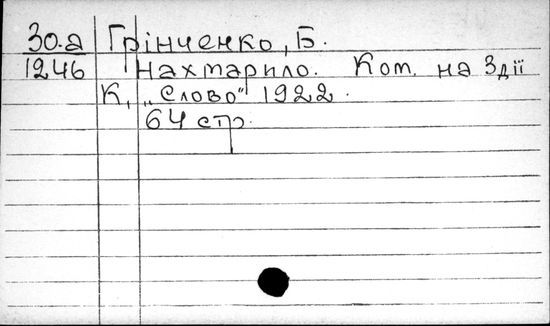 30.а Грінченко, Б.
1246 Нахмарило. Ком. на 3 дії
К, „Слово" 1922.
64 стр.